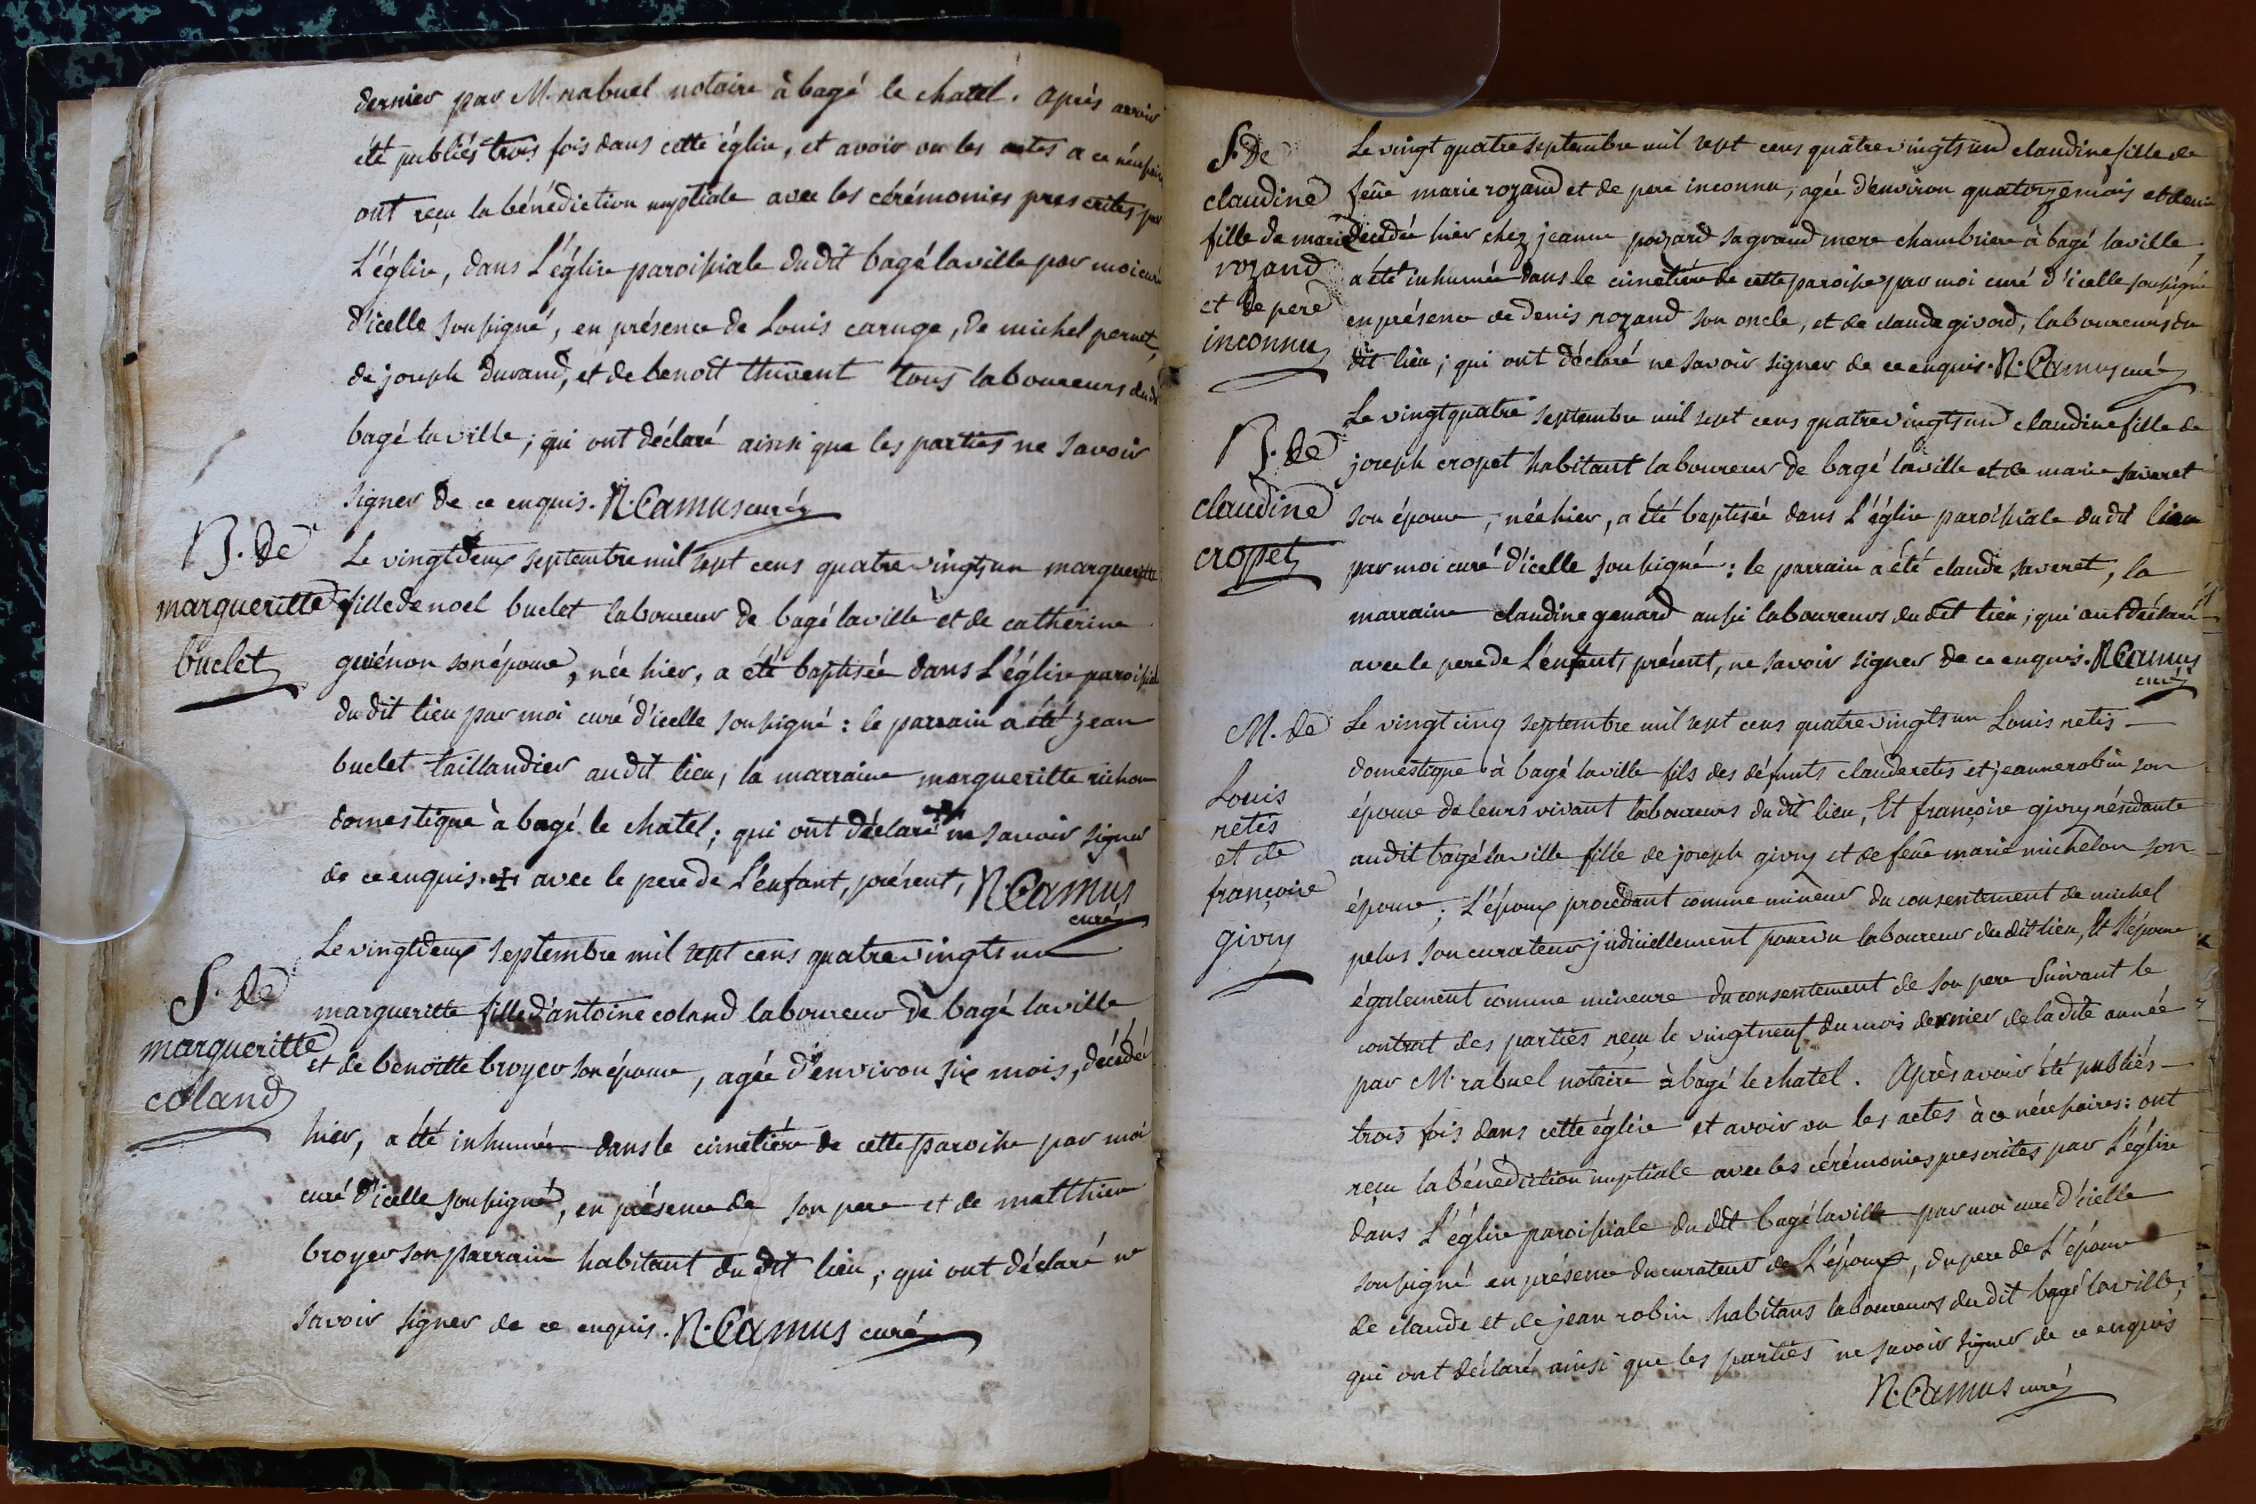 dernier par M. rabuel notaire à bagé le chatel. Après avoir
été publiés trois fois dans cette église, et avoir vu les actes a ce nécessaires
ont reçu la bénédiction nuptiale avec les cérémonies prescrites par
L'église, dans L'église paroissiale dudit bagé laville par moi curé
d'icelle soussigné, en présence de Louis caruge, de michel pernet,
de joseph durand, et de benoît thivent tous laboureurs dudit
bagé la ville; qui ont déclaré ainsi que les parties ne savoir
signer de ce enquis. N. Camus curé
B. de
margueritte
buclet
Le vingtdeux septembre mil sept cens quatrevingts un margueritte
fille de noel buclet laboureur de bagé laville et de catherine
guiénon son épouse, née hier, a été baptisée dans L'église paroissiale
dudit lieu par moi curé d'icelle soussigné: le parrain a été jean
buclet taillandier audit lieu, la marraine margueritte richon
domestique à bagé le chatel; qui ont déclaré ne savoir signer
de ce enquis. + avec le pere de L'enfant, présent, N. Camus
curé
S. de
margueritte
coland
Le vingtdeux septembre mil sept cens quatrevingts un
margueritte fille d'antoine coland laboureur de bagé laville
et de benoitte broyer son épouse, agée d'environ six mois, décédée
hier, a été inhumée dans le cimetière de cette paroisse par moi
curé d'icelle soussigné, en présence de son pere et de matthieu
broyer son parrain habitant du dit lieu; qui ont déclaré ne
savoir signer de ce enquis. N. Camus curé
S. de
claudine
fille de marie
rozand
et de pere
inconnu
Le vingt quatre septembre mil sept cens quatrevingts un claudine fille de
feüe marie rozand et de pere inconnu, agée d'environ quatorze mois et demi
décédée hier chez jeanne poizard sa grand mere chambriere à bagé laville,
a été inhumée dans le cimetière de cette paroisse par moi curé d'icelle soussigné
en présence de denis rozand son oncle, et de claude givord, laboureurs du
dit lieu; qui ont déclaré ne savoir signer de ce enquis. N. Camus curé
B. de
claudine
cropet
Le vingtquatre septembre mil sept cens quatrevingts un claudine fille de
joseph cropet habitant laboureur de bagé laville et de marie saveret
son épouse, née hier, a été baptisée dans L'église paroissiale du dit lieu
par moi curé d'icelle soussigné: le parrain a été claude saveret, la
marraine claudine genard aussi laboureurs du dit lieu; qui ont déclaré
avec le pere de L'enfant, présent, ne savoir signer de ce enquis. N. Camus
curé
M. de
Louis
retis
et de
françoise
givry
Le vingtcinq septembre mil sept cens quatrevingts un Louis retis
domestique à bagé laville fils des défunts claude retis et jeanne robin son
épouse de leurs vivant laboureurs du dit lieu, Et françoise givry résidante
audit bagé laville fille de joseph givry et de feüe marie michelon son
épouse; L'époux procédant comme mineur du consentement de michel
pelus son curateur judiciellement pourvu laboureur dudit lieu, Et L'épouse
également comme mineure du consentement de son pere suivant le
contrat des parties reçu le vingtneuf du mois dernier de la dite année
par M. rabuel notaire à bagé le chatel. Après avoir été publiés
trois fois dans cette église et avoir vu les actes à ce nécessaires: ont
reçu la bénédiction nuptiale avec les cérémonies prescrites par L'église
dans L'église paroissiale du dit bagé laville par moi curé d'icelle
soussigné en présence du curateur de L'époux, du pere de L'épouse
de claude et de jean robin habitans laboureurs du dit bagé laville;
qui ont déclaré ainsi que les parties ne savoir signer de ce enquis
N. Camus curé